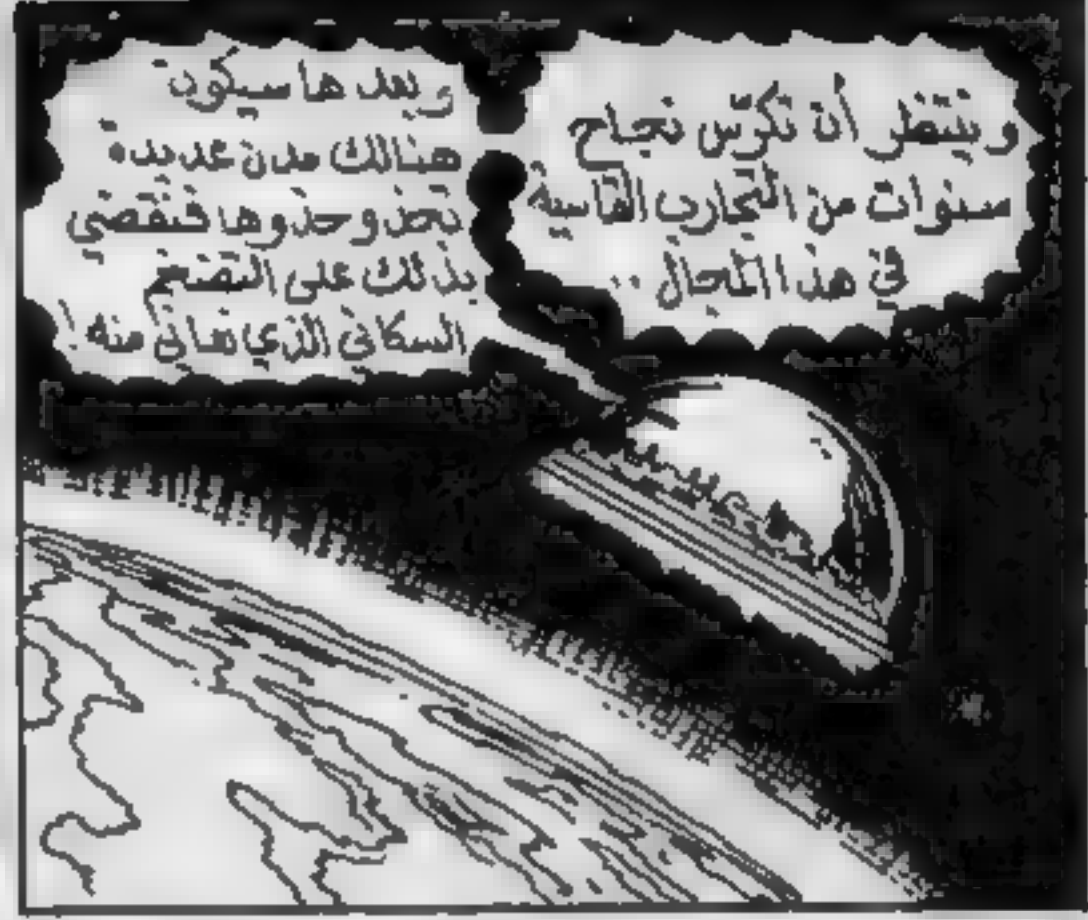 وينتظر أن تكرّس نجاح
سنوات من التجارب القاسية
في هذا المجال ..
وبعدها سيكون
هنالك مدن عديدة
تحذو حذوها فنقضي
بذلك على التضخم
السكاني الذي نعاني منه !